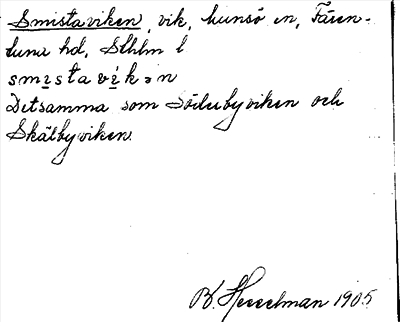 Smistaviken, vik, Munsö sn, Fären-
tuna hd, Sthlm l
smistavikən
Detsamma som Söderbyviken och
Skälbyviken.
B. Hesselman 1905